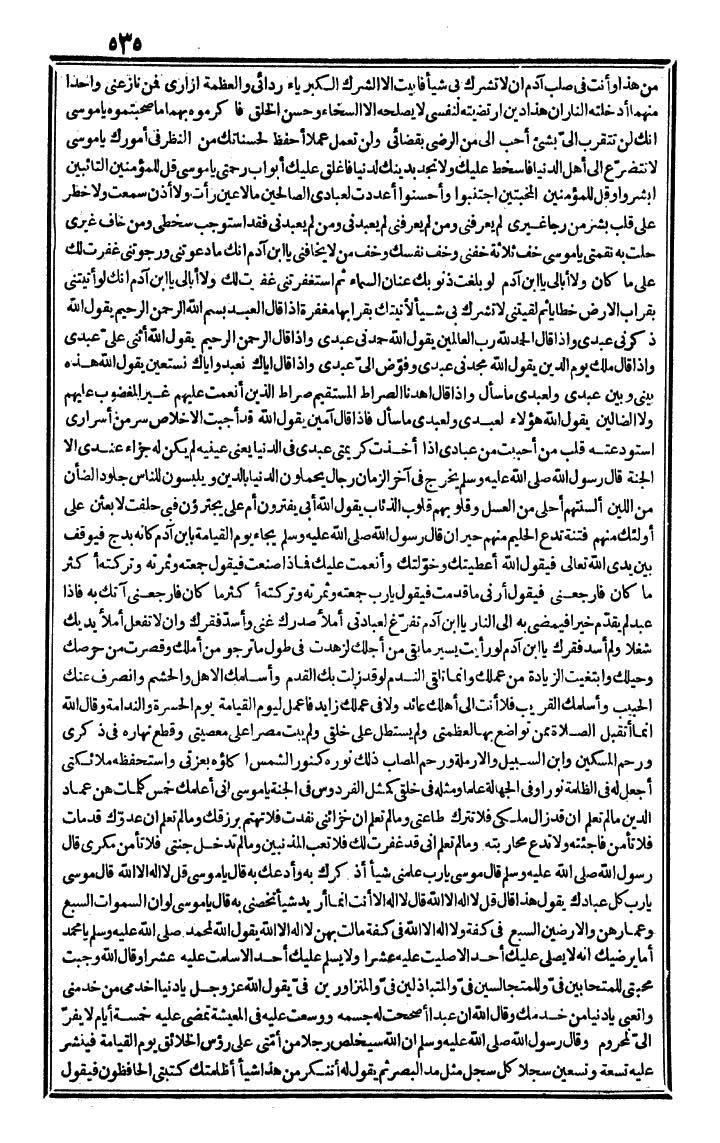 ٥٣٥
من هذا وأنت فى صلب آدم ان لا تشرك بى شيأ فابيت الا الشرك الكبرياء ردائى والعظمة ازارى فمن نازعنى واحدا
منهما أدخلته النار ان هذا دين ارتضيته لنفسى لا يصلحه الا السخاء وحسن الخلق فاكرموه بهما ما صحبتموه يا موسى
انك لن تتقرب الىّ بشئ أحب الى من الرضى بقضائى ولن تعمل عملا أحفظ لحسناتك من النظر فى أمورك يا موسى
لا تتضرع الى أهل الدنيا فاسخط عليك ولا تجد بدينك لدنيا فاغلق عليك أبواب رحمتى يا موسى قل للمؤمنين التائبين
ابشروا وقل للمؤمنين المخبتين اجتنبوا وأحسنوا أعددت لعبادى الصالحين مالا عين رأت ولا أذن سمعت ولا خطر
على قلب بشر من رجا غيرى لم يعرفنى ومن لم يعرفنى لم يعبدنى ومن لم يعبدنى فقد استوجب سخطى ومن خاف غيرى
حلت به نقمتى يا موسى خف ثلاثة خفنى وخف نفسك وخف من لا يخافنى يا ابن آدم انك ما دعوتنى ورجوتنى غفرت لك
على ما كان ولا أبالى يا ابن آدم لو بلغت ذنوبك عنان السماء ثم استغفرتنى غفرت لك ولا أبالى يا ابن آدم انك لو أتيتنى
بقراب الارض خطايا ثم لقيتنى لا تشرك بى شيأ لأتيتك بقرابها مغفرة اذا قال العبد بسم الله الرحمن الرحيم يقول الله
ذكرنى عبدى واذا قال الحمد لله رب العالمين يقول الله حمدنى عبدى واذا قال الرحمن الرحيم يقول الله أثنى علىّ عبدى
واذا قال ملك يوم الدين يقول الله مجدنى عبدى وفوّض الىّ عبدى واذا قال اياك نعبد واياك نستعين يقول الله هذه
بينى وبين عبدى ولعبدى ما سأل واذا قال اهدنا الصراط المستقيم صراط الذين أنعمت عليهم غير المغضوب عليهم
ولا الضالين يقول الله هؤلاء لعبدى ولعبدى ما سأل فاذا قال آمين يقول الله قد أجبت الاخلاص سر من أسرارى
استودعته قلب من أحببت من عبادى اذا أخذت كريمتى عبدى فى الدنيا يعنى عينيه لم يكن له جزاء عندى الا
الجنة قال رسول الله صلى الله عليه وسلم يخرج فى آخر الزمان رجال يحملون الدنيا بالدين ويلبسون للناس جلود الضأن
من اللين ألسنتهم أحلى من العسل وقلوبهم قلوب الذئاب يقول الله أبى يفترون أم على يجترؤن فبى حلفت لا بعثن على
أولئك منهم فتنة تدع الحليم منهم حيران قال رسول الله صلى الله عليه وسلم يجاء يوم القيامة بابن آدم كانه بدج فيوقف
بين يدى الله تعالى فيقول الله أعطيتك وخوّلتك وأنعمت عليك فماذا صنعت فيقول جمعته وثمرته وتركته أكثر
ما كان فارجعنى فيقول أرنى ما قدمت فيقول يارب جمعته وثمرته وتركته أكثر ما كان فارجعنى آتك به فاذا
عبد لم يقدّم خيرا فيمضى به الى النار يا ابن آدم تفرّغ لعبادتى أملأ صدرك غنى وأسدّ فقرك وان لا تفعل أملأ يديك
شغلا ولم أسد فقرك يا ابن آدم لو رأيت يسير ما بقى من أجلك لزهدت فى طول ما ترجو من أملك وقصرت من حرصك
وحيلك وابتغيت الزيادة من عملك وانما تلقى الندم لو قد زلت بك القدم وأسلمك الاهل والحشم وانصرف عنك
الحبيب وأسلمك القريب فلا أنت الى أهلك عائد ولا فى عملك زايد فاعمل ليوم القيامة يوم الحسرة والندامة وقال الله
انما أتقبل الصلاة ممن تواضع بها لعظمتى ولم يستطل على خلقى ولم يبت مصرا على معصيتى وقطع نهاره فى ذكرى
ورحم المسكين وابن السبيل والارملة ورحم المصاب ذلك نوره كنور الشمس اكلؤه بعزتى واستحفظه ملائكتى
أجعل له فى الظلمة نورا وفى الجهالة علما ومثله فى خلقى كمثل الفردوس فى الجنة يا موسى انى أعلمك خمس كلمات هن عماد
الدين ما لم تعلم ان قد زال ملكى فلا تترك طاعتى وما لم تعلم ان خزائنى نفدت فلا تهتم برزقك وما لم تعلم ان عدوّك قد مات
فلا تأمن فاجئته ولا تدع محاربته وما لم تعلم انى قد غفرت لك فلا تعب المذنبين وما لم تدخل جنتى فلا تأمن مكرى قال
رسول الله صلى الله عليه وسلم قال موسى يارب علمنى شيأ أذكرك به وأدعك به قال يا موسى قل لا اله الا الله قال موسى
يارب كل عبادك يقول هذا قال قل لا اله الا الله قال لا اله الا أنت انما أريد شيأ تخصنى به قال يا موسى لو ان السموات السبع
وعمارهن والارضين السبع فى كفة ولا اله الا الله فى كفة مالت بهن لا اله الا الله يقول الله لمحمد صلى الله عليه وسلم يا محمد
أما يرضيك انه لا يصلى عليك أحد الا صليت عليه عشرا ولا يسلم عليك أحد الا سلمت عليه عشرا وقال الله وجبت
محبتى للمتحابين فىّ وللمتجالسين فىّ والمتباذلين فىّ والمتزاورين فى يقول الله عز وجل يا دنيا اخدمى من خدمنى
واتعبى يا دنيا من خدمك وقال الله ان عبدا أصححت له جسمه ووسعت عليه فى المعيشة تمضى عليه خمسة أيام لا يفرّ
الىّ لمحروم وقال رسول الله صلى الله عليه وسلم ان الله سيخلص رجلا من أمتى على رؤس الخلائق يوم القيامة فينشر
عليه تسعة وتسعين سجلا كل سجل مثل مد البصر ثم يقول له أتنكر من هذا شيأ أظلمتك كتبتى الحافظون فيقول